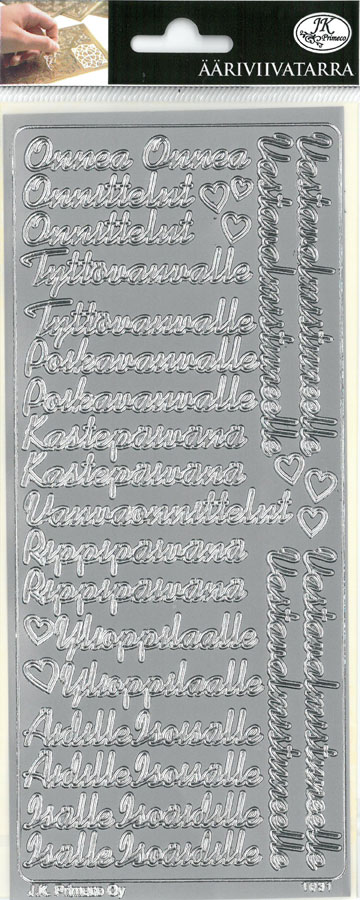 JK
Primeco
ÄÄRIVIIVATARRA
Onnea Onnea
Onnittelut
Onnittelut
Tyttövauvalle
Tyttövauvalle
Poikavauvalle
Poikavauvalle
Kastepäivänä
Kastepäivänä
Vauvaonnittelut
Rippipäivänä
Rippipäivänä
Ylioppilaalle
Ylioppilaalle
Äidille Isoisälle
Äidille Isoisälle
Isälle Isoäidille
Isälle Isoäidille
Vastavalmistuneelle
Vastavalmistuneelle
Vastavalmistuneelle
Vastavalmistuneelle
J.K. Primeco Oy
1031